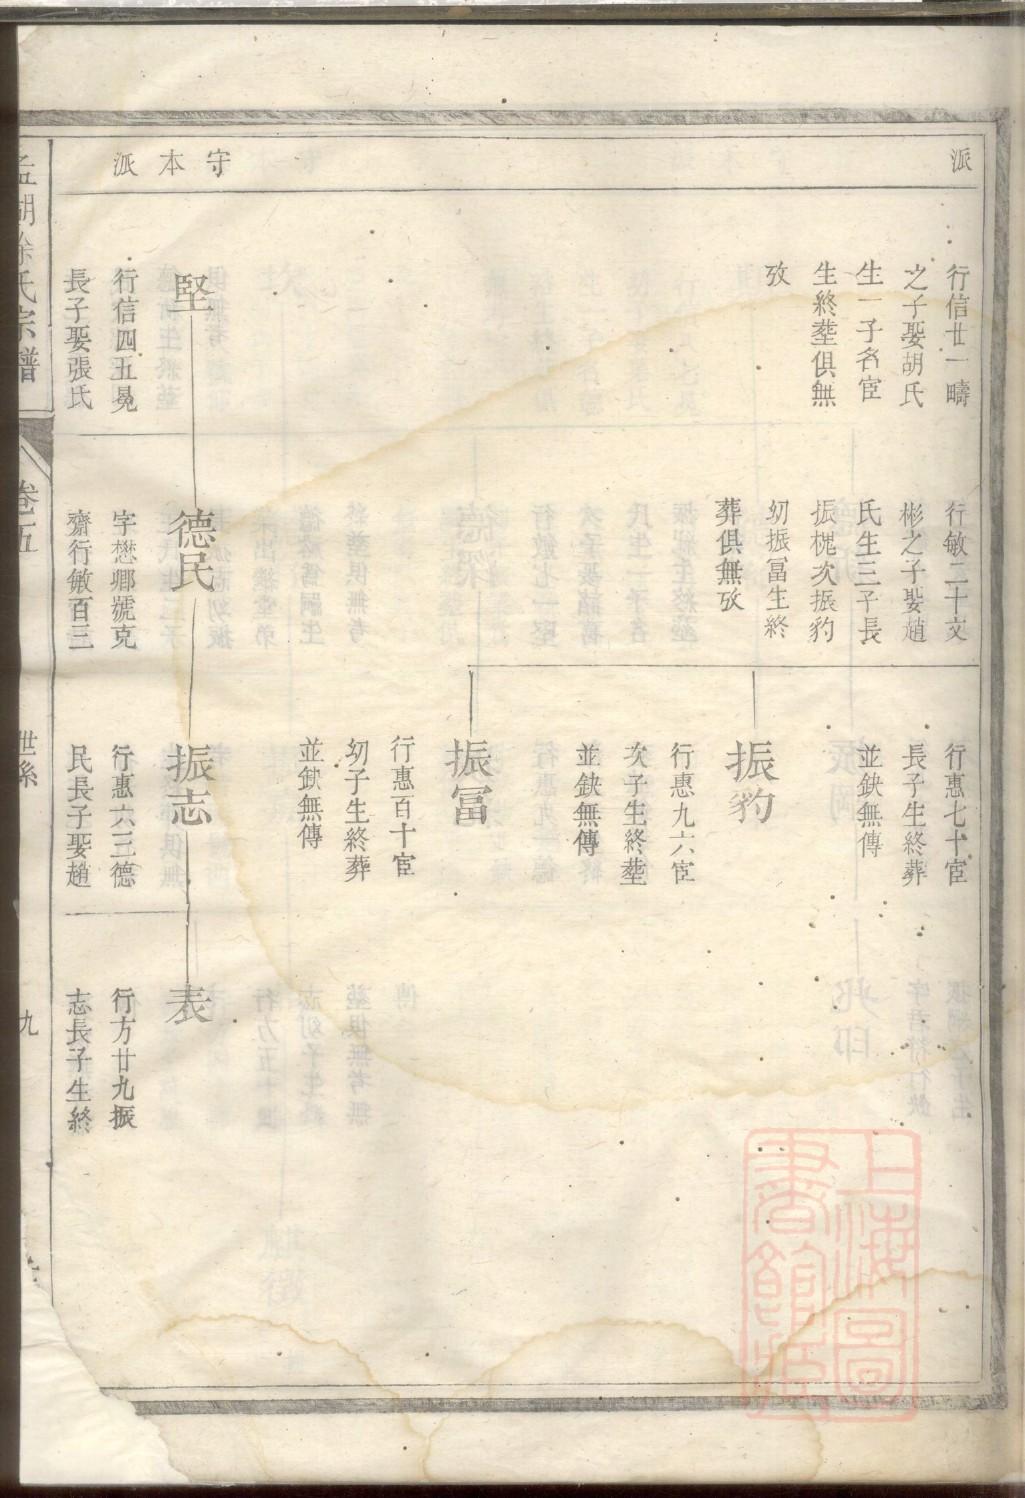 派
守本派
行信廿一疇
之子娶胡氏
生一子名宦
生終塟俱無
攷
堅
行信四五冕
長子娶張氏
行敏二十文
彬之子娶趙
氏生三子長
振槐次振豹
㓜振冨生終
葬俱無攷
德民
字懋卿號克
齋行敏百三
行惠七十宦
長子生終葬
並鈌無傳
振豹
行惠九六宦
次子生終塟
並鈌無傳
振冨
行惠百十宦
㓜子生終葬
並鈌無傳
振志
行惠六三德
民長子娶趙
表
行方廿九振
志長子生終
氏宗譜
卷五
世系
九
上海圖
書館藏